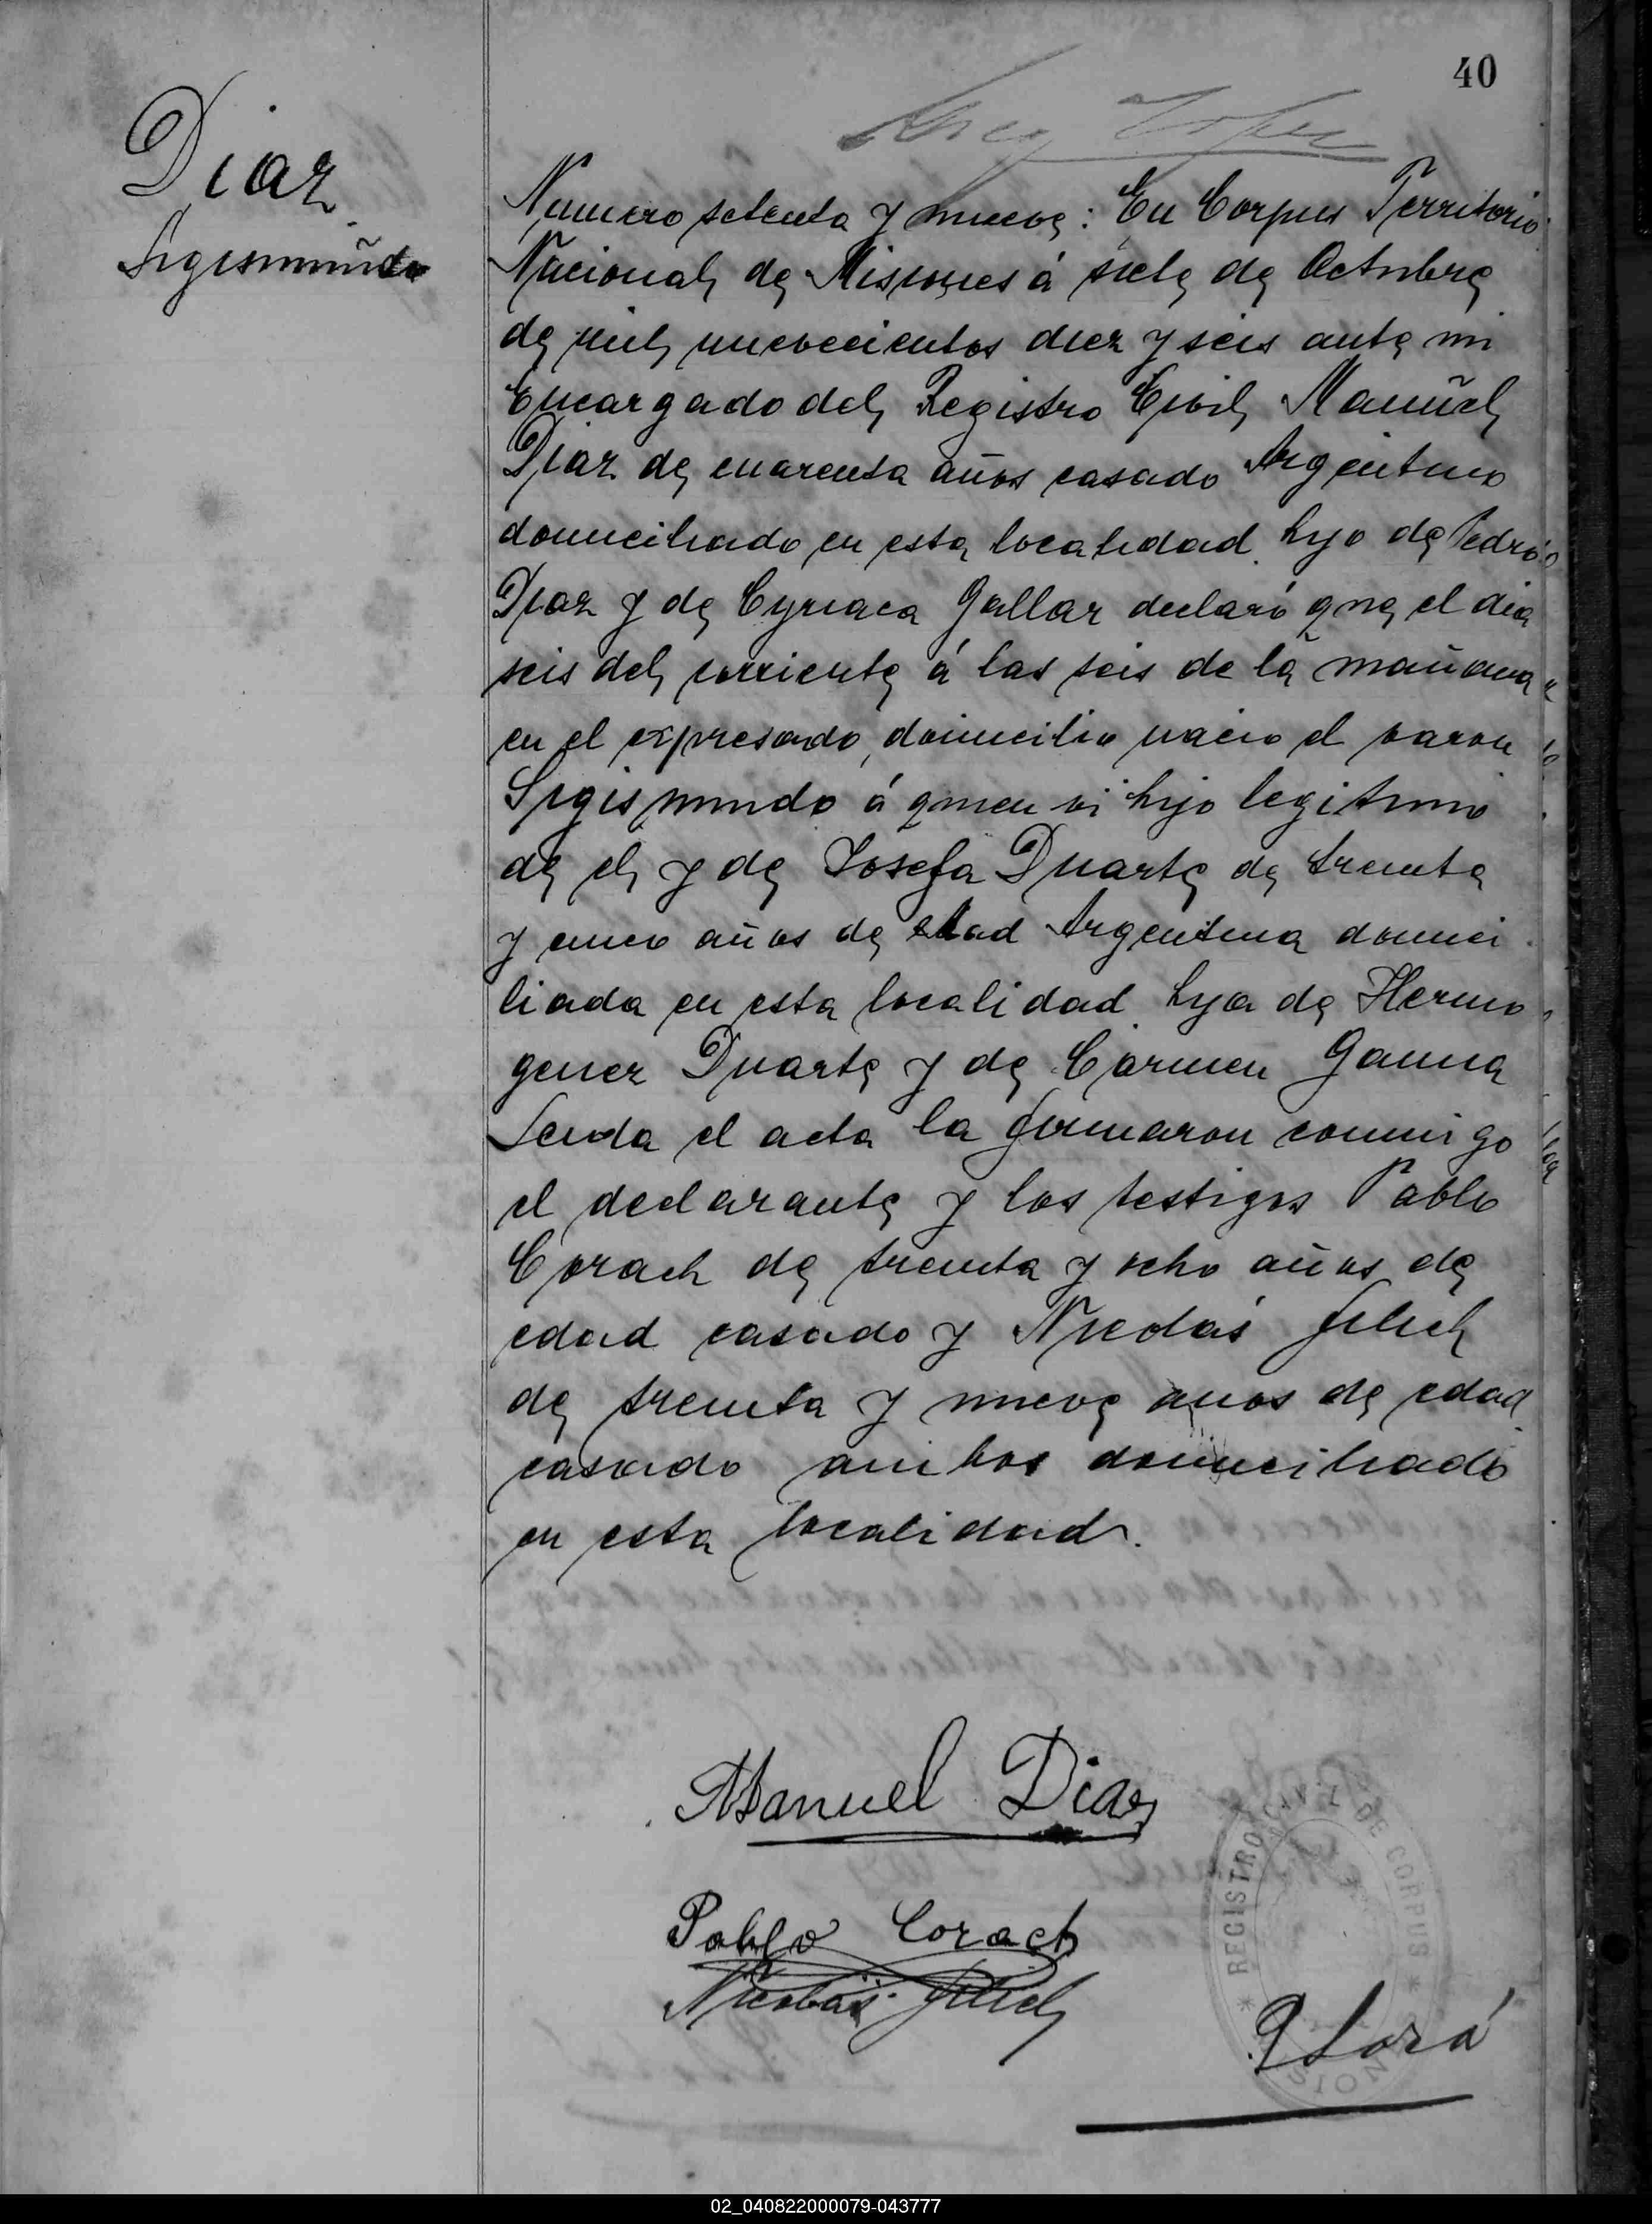 40
Diaz
Sigismundo
Numero setenta y nueve: En Corpus Territorio
Nacional de Misiones á siete de Octubre
de mil nuevecientos diez y seis ante mi
Encargado del Registro Civil Manuel
Diaz de cuarenta años casado Argentino
domiciliado en esta localidad hijo de Pedro
Diaz y de Cyriaca Gallar declaró que el dia
seis del corriente á las seis de la mañana
en el expresado domicilio nacio el varon
Sigismundo á quien vi hijo legitimo
de el y de Josefa Duarte de treinta
y cinco años de edad Argentina domici
liada en esta localidad hija de Hermo
genez Duarte y de Carmen Gauna
Leida el acta la firmaron conmigo
el declarante y los testigos Pablo
Corach de treinta y ocho años de
edad casado y Nicolás
de treinta y nueve años de edad
casado ambos domiciliado
en esta localidad.
Manuel Diaz
Pablo Corach
Nicolás
REGISTRO CIVIL DE CORPUS
02_040822000079-043777